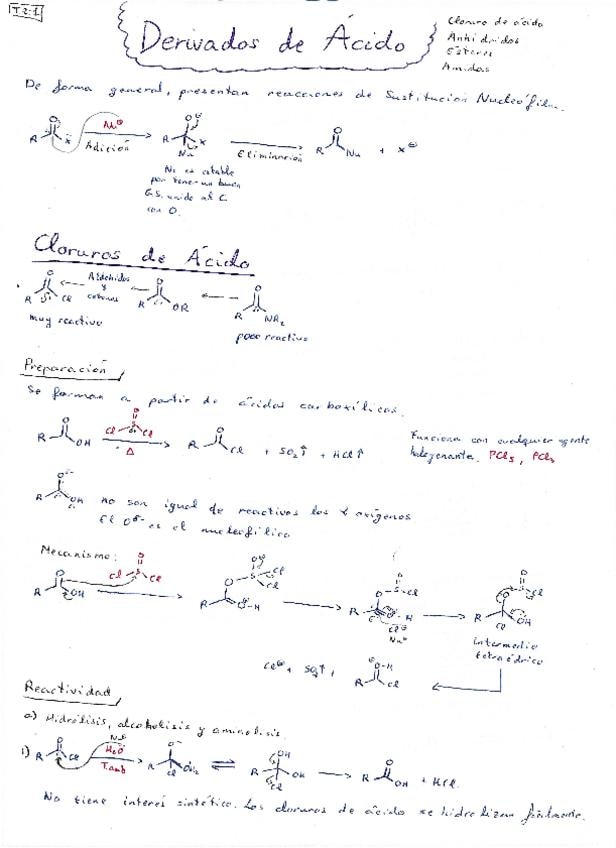 T.2.1
Derivados de Ácido
Cloruro de ácido
Anhídridos
Esteres
Amidas
De forma general, presentan reacciones de Sustitución Nucleófila.
Nu⊖
Adición
Eliminación
R O X
R O⊖ X Nu
R O Nu + X⊖
No es estable
por tener un buen
G.S. unido al C
con O.
Cloruros de Ácido
R O Cl
Aldehidos
y
cetonas
R O OR
R O NR2
muy reactivo
poco reactivo
Preparación
Se forman a partir de ácidos carboxílicos.
R O OH
Cl S O Cl
Δ
R O Cl + SO2↑ + HCl↑
Funciona con cualquier agente
halogenante. PCl5, PCl3
R O OH no son igual de reactivos los 2 oxígenos
El Oδ- es el nucleofílico
Mecanismo:
R O OH
Cl S O Cl
R O S Cl O-H
Cl⊖
Nu⊖
R O Cl OH
Intermedio
tetraédrico
Cl⊖ + SO2↑ + R O-H Cl
Reactividad
a) Hidrólisis, alcoholisis y aminolisis.
1) R O Cl
Nu⊖
H2O
T.amb
R O⊖ Cl OH2
R OH OH Cl
R O OH + HCl
No tiene interés sintético. Los cloruros de ácido se hidrolizan fácilmente.